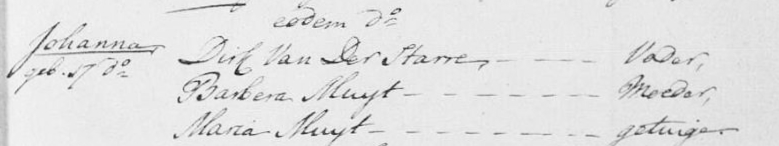 eodem do
Johanna Dirk Van Der Starre, - - - - Vader,
geb. 17 do
Barbera Muyt - - - - - - Moeder,
Maria Muyt - - - - - - - getuige